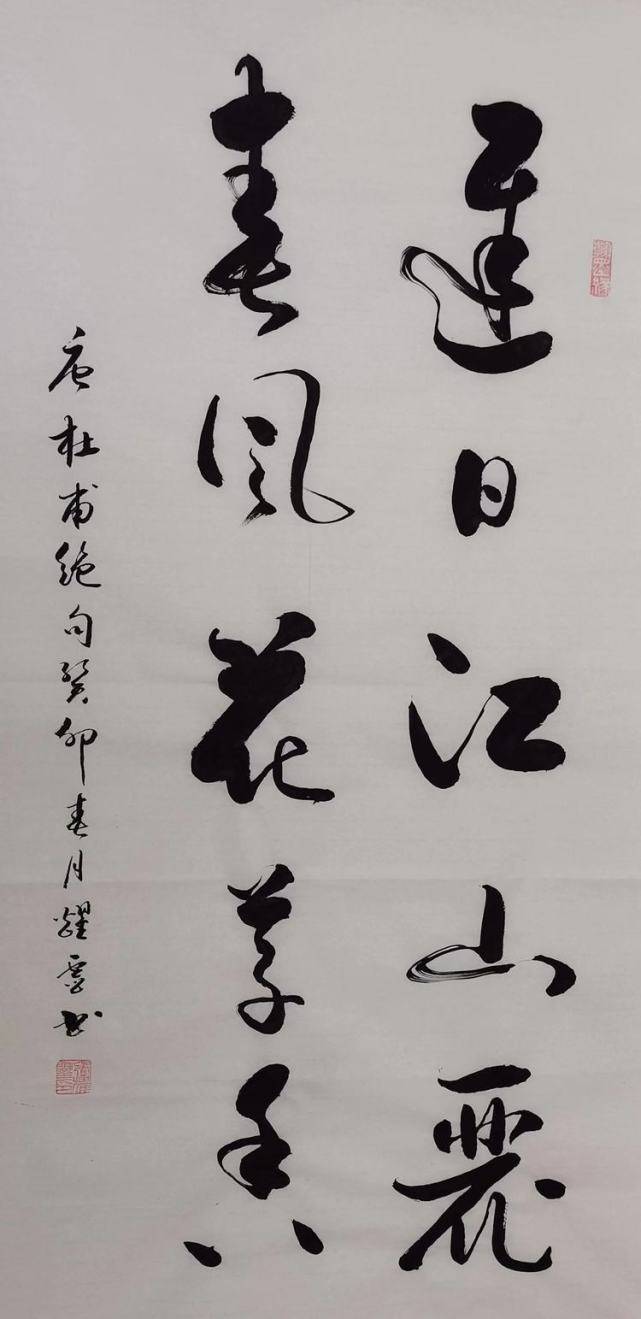 遲日江山麗
春風花草香
唐杜甫絕句癸卯春月耀雲书